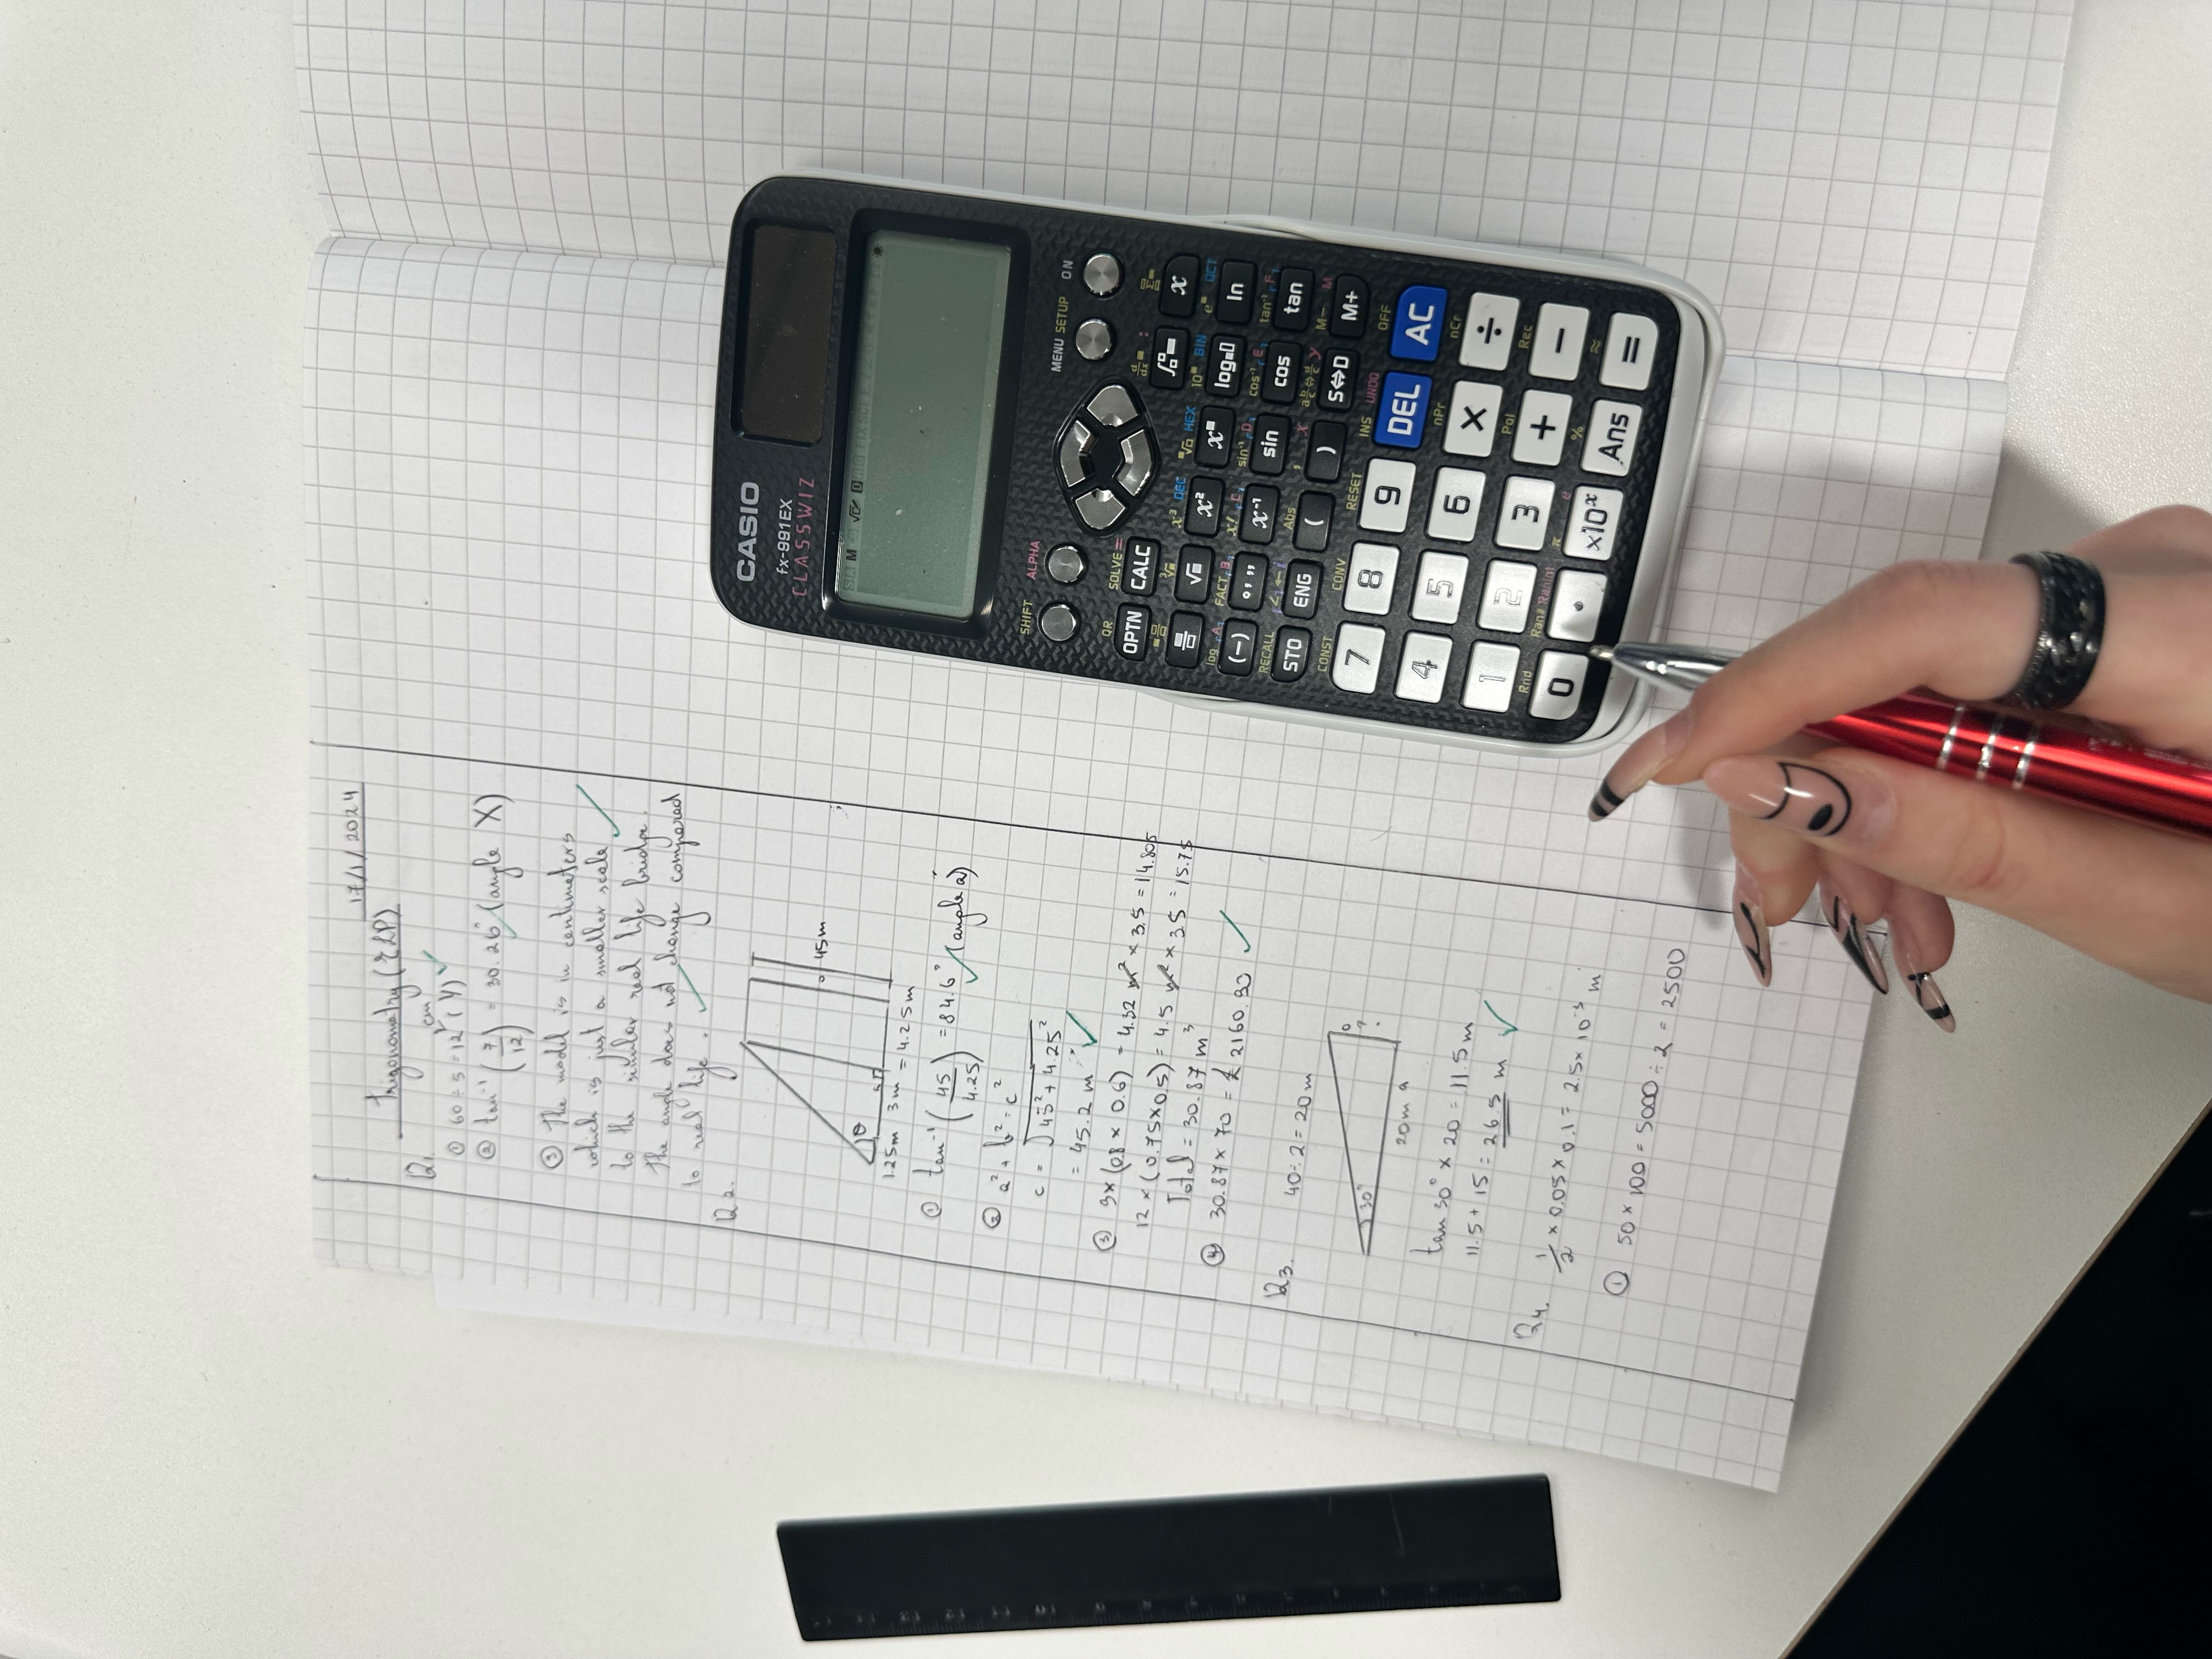 17/1/2024
Trigonometry (ZLP)
Q1.
① 60 ÷ 5 = 12 cm (Y)
② tan⁻¹ (7/12) = 30.26° (angle X)
③ The model is in centimeters
which is just a smaller scale
to the similar real life bridge.
The angle does not change compared
to real life.
Q2.
45m
θ
1.25m 3m = 4.25m
① tan⁻¹ (45/4.25) = 84.6° (angle a)
② a² + b² = c²
c = √45² + 4.25²
= 45.2 m
③ 9 × (0.8 × 0.6) = 4.32 m² × 3.5 = 14.805
12 × (0.75 × 0.5) = 4.5 m² × 3.5 = 15.75
Total = 30.87 m³
④ 30.87 × 70 = £ 2160.90
Q3.
40 ÷ 2 = 20 m
30°
o
?
20m a
tan 30° × 20 = 11.5 m
11.5 + 15 = 26.5 m
Q4.
1/2 × 0.05 × 0.1 = 2.5 × 10⁻³ m
① 50 × 100 = 5000 ÷ 2 = 2500
CASIO
fx-991EX
CLASSWIZ
SHIFT ALPHA MENU SETUP ON
QR SOLVE =
OPTN CALC x
log□
ln
(−) x⁻¹ sin cos tan
RECALL Abs
STO ENG ( ) S⇔D M+
CONST CONV RESET INS UNDO OFF
7 8 9 DEL AC
nPr nCr
4 5 6 × ÷
Pol Rec
1 2 3 + −
Rnd Ran# RanInt π e % ≈
0 • ×10ˣ Ans =